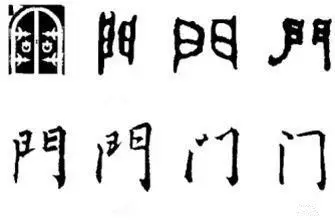 門 門 門
門 門 门 门